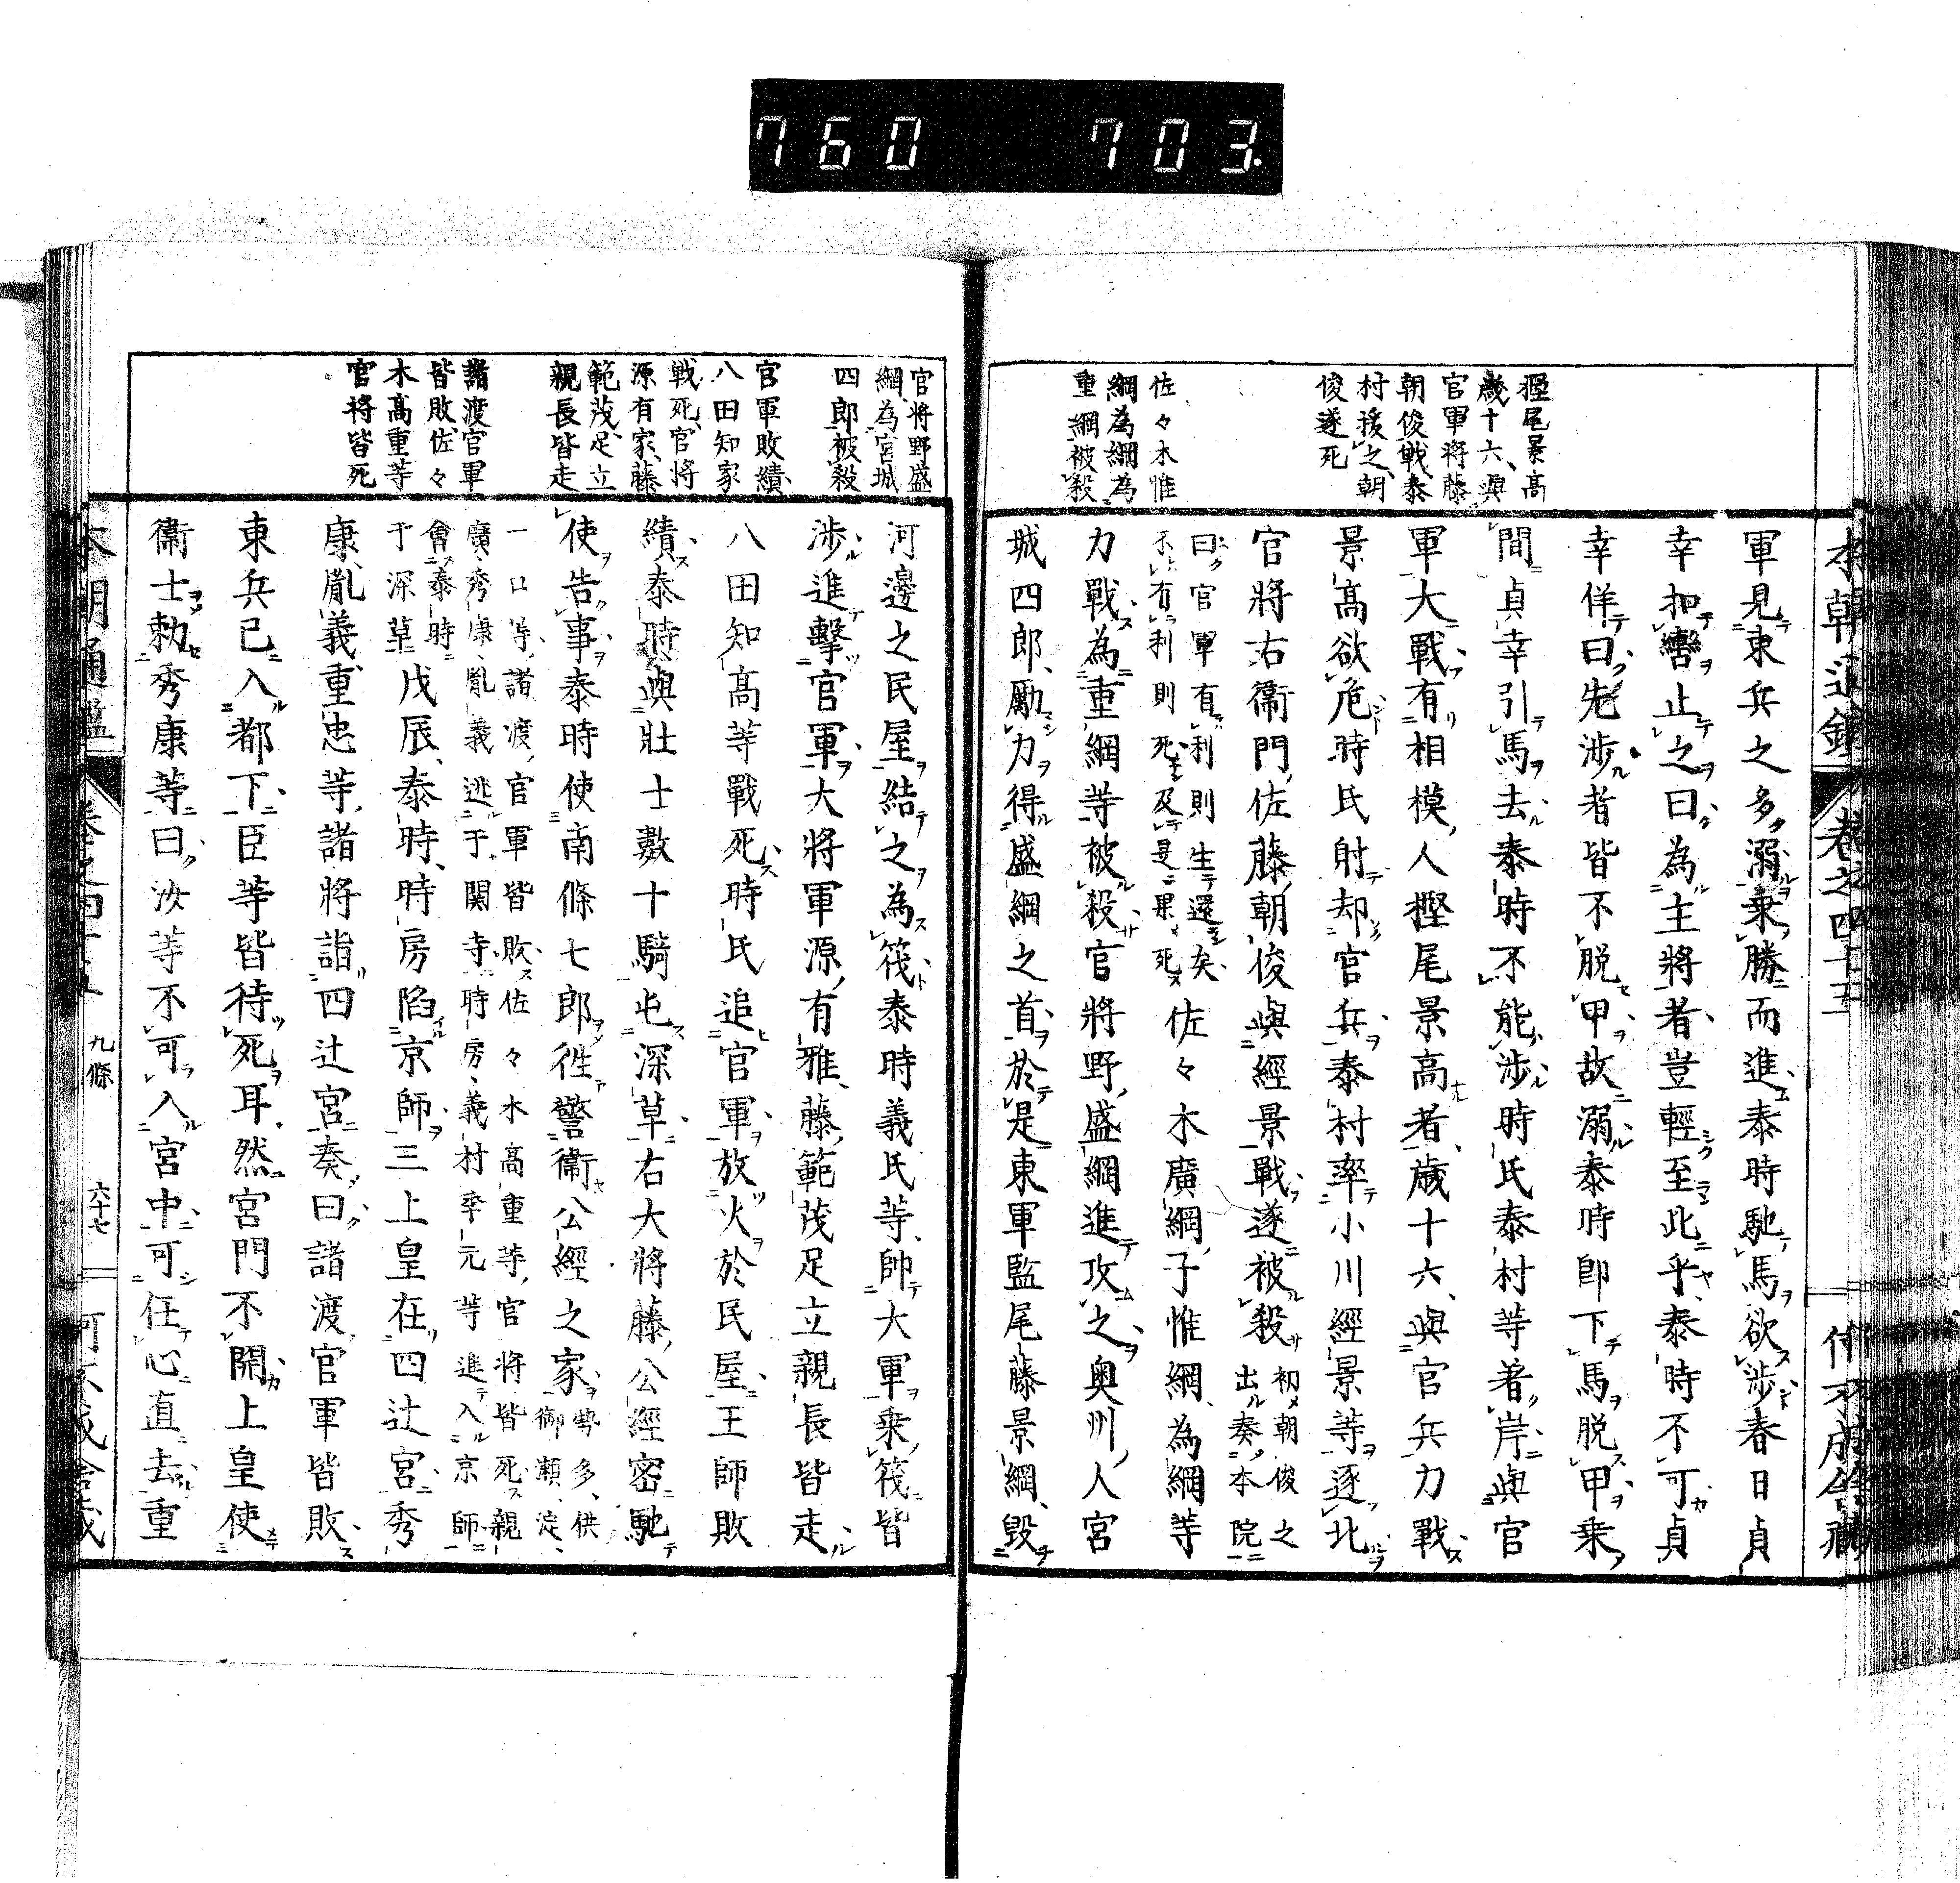 760 703.
樫尾景高
歲十六、與
官軍將藤
朝俊戰、泰
村援之、朝
俊遂死
佐々木惟
綱為綱為
重綱被殺
軍見東兵之多、溺乘勝而進泰時馳馬欲涉春日貞
幸扣轡止之曰、為主將者豈輕至此乎、泰時不可貞
幸佯曰、先涉者皆不脫甲故溺泰時即下馬脫甲乘
間貞幸引馬去泰時不能涉時氏泰村等著岸與官
軍大戰有相模人樫尾景高者、歲十六、與官兵力戰
景高欲危時氏射却官兵泰村率小川經景等逐北
官將右衞門佐藤朝俊與經景戰遂被殺初朝俊之出奏本院
曰官軍有利則生還矣、不有利則死、及是果死佐々木廣綱子惟綱、為綱等
力戰為重綱等被殺官將野盛綱進攻之、奧州人宮
城四郎、勵力得盛綱之首、於是東軍監尾藤景綱、毀
官將野盛
綱、為宮城
四郎被殺
官軍敗績、
八田知家
戰死、官將
源有家、藤
範茂、足立
親長皆走
諸渡官軍
皆敗、佐々
木高重等
官將皆死
河邊之民屋結之為筏泰時義氏等、帥大軍乘筏皆
涉進擊官軍大將軍源有雅、藤範茂足立親長皆走
八田知高等戰死、時氏追官軍放火於民屋王師敗
績、泰時與壯士數十騎屯深草右大將藤公經密馳
使告事泰時使南條七郎徃警衞公經之家勢多、供御瀨、淀、
一口等、諸渡、官軍皆敗佐々木高重等、官將皆死親
廣秀康、胤義逃于關寺時房、義村季元等進入京師
會泰時于深草戊辰、泰時、時房陷京師三上皇在四辻宮秀
康、胤義、重忠等、諸將詣四辻宮奏曰、諸渡官軍皆敗
東兵已入都下臣等皆待死耳、然宮門不開上皇使
衞士勅秀康等曰、汝等不可入宮中可任心直去重
本朝通鑑 卷之四十五 九條 六十七